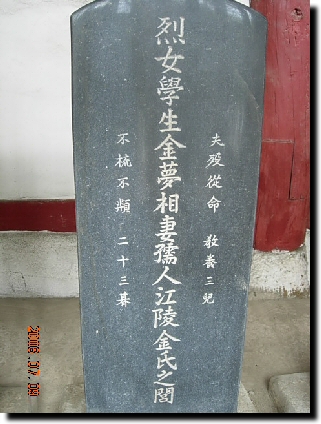 夫歿從命 敎養三兒
烈女學生金夢相妻孺人江陵金氏之閭
不梳不頮 二十三暮
2006.07.09